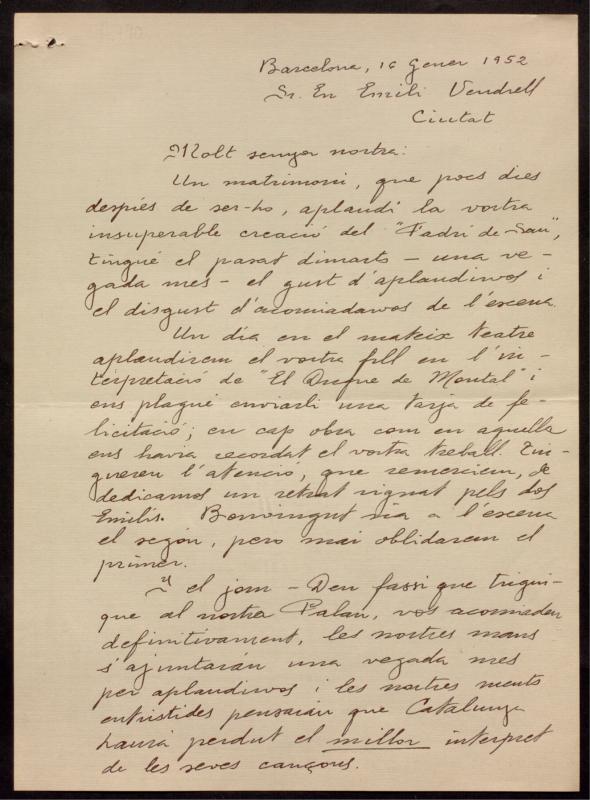 Barcelona, 16 Gener 1952
Sr. En Emili Vendrell
Ciutat
Molt senyor nostre:
Un matrimoni, que pocs dies
després de ser-ho, aplaudí la vostra
insuperable creació del "Cadri de Sau",
tingué el passat dimarts – una ve-
gada mes – el gust d'aplaudirvos i
el disgust d'acomiadarvos de l'escena.
Un dia en el mateix teatre
aplaudirem el vostre fill en l'in-
terpretació de "El Duque de Montal" i
ens plagué enviarli una tarja de fe-
licitació; en cap obra com en aquella
ens havia recordat el vostre treball. Tin-
guereu l'atenció, que remerciem, de
dedicarnos un retrat signat pels dos
Emilis. Benvingut sia a l'escena
el segón, pero mai oblidarem el
primer.
Y el jorn – Deu fassi que trigui –
que al nostre Palau, vos acomiadeu
definitivament, les nostres mans
s'ajuntarán una vegada mes
per aplaudirvos i les nostres ments
entristides pensarán que Catalunya
haurá perdut el millor interpret
de les seves cançons.